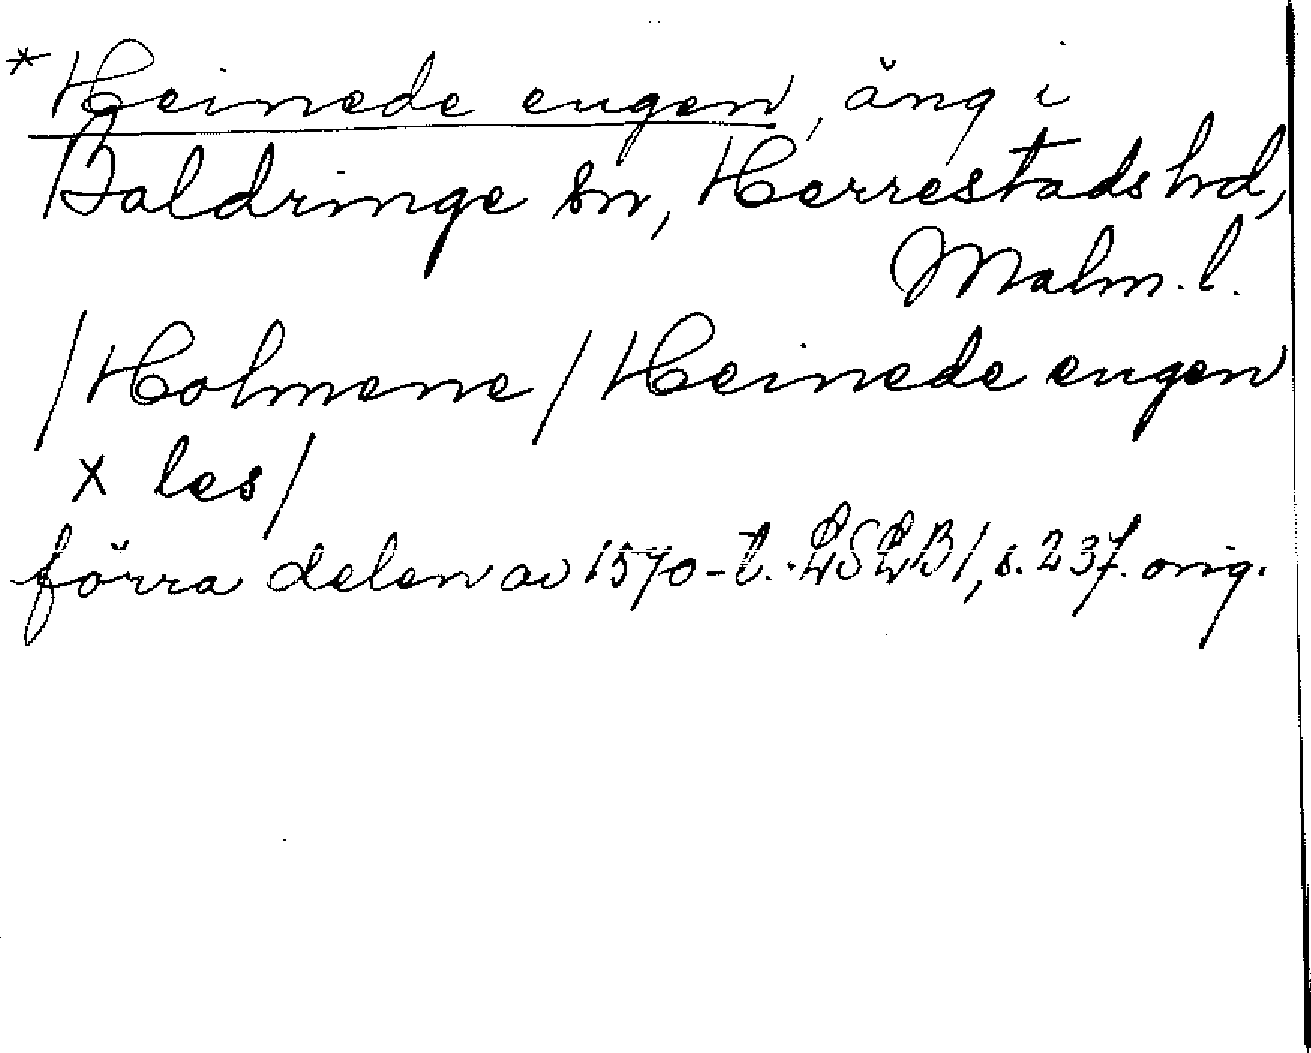 *Heinede engen, äng i
Baldringe sn, Herrestads hd,
Malm. l.
/Holmene/Heinede engen
x les/
förra delen av 1570-t. LSLB1, s. 237. orig.